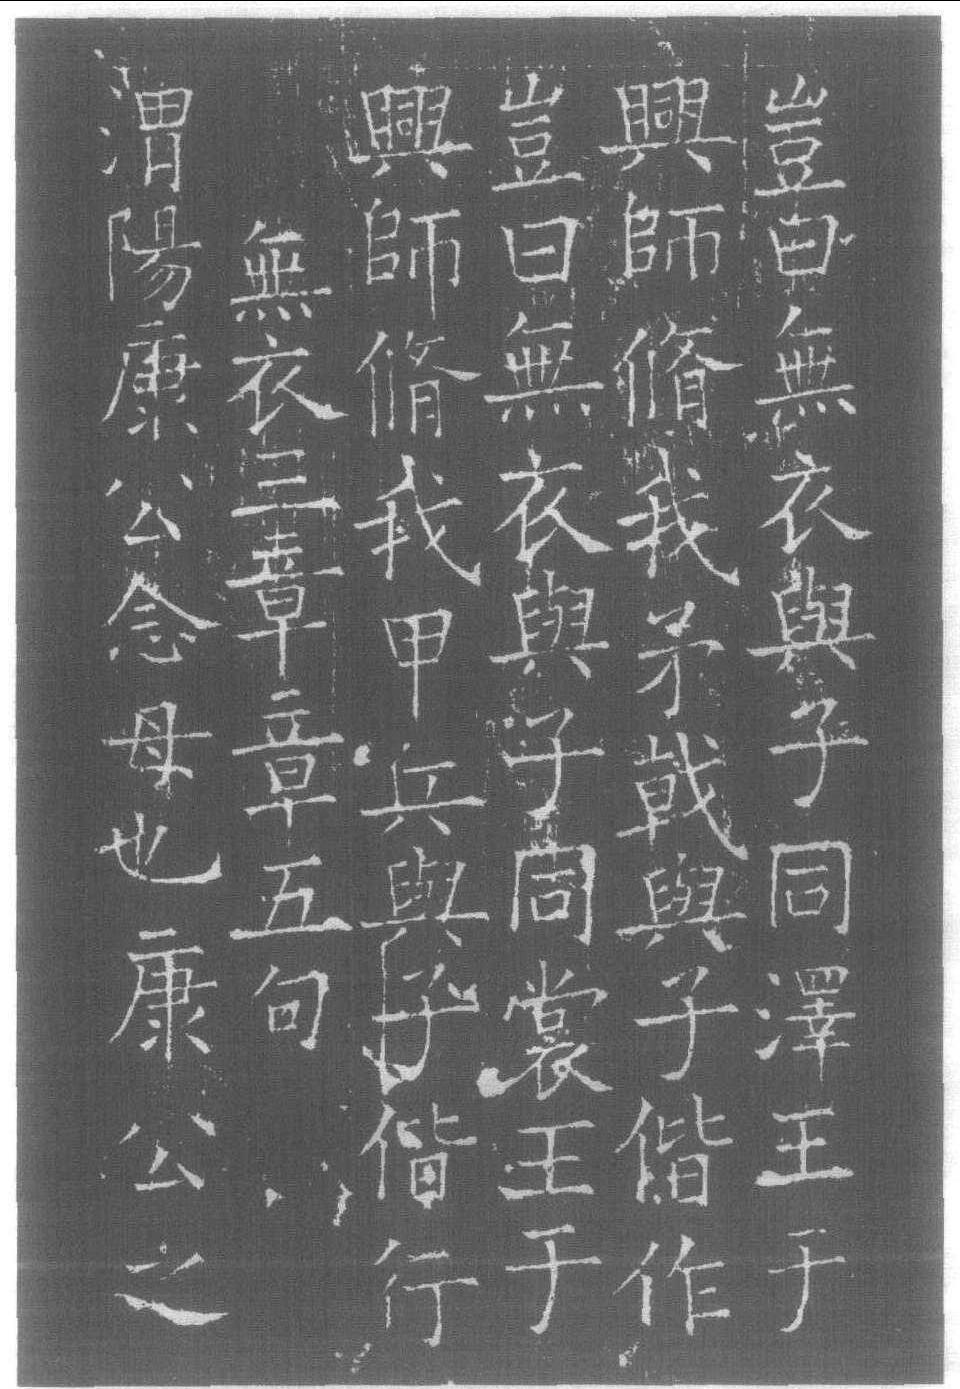 豈曰無衣與子同澤王于
興師脩我矛戟與子偕作
豈曰無衣與子同裳王于
興師脩我甲兵與子偕行
無衣三章章五句
渭陽康公念母也康公之